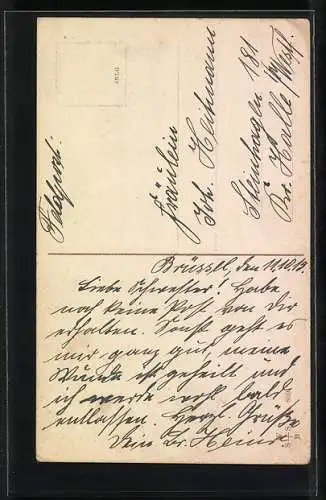 Feldpost.
Fräulein
Joh. Heitmann
Steinhagen 181
Kr. Halle i/Westf.
Brüssel, den 11.10.15
Liebe Schwester! Habe
noch keine Post von dir
erhalten. Sonst geht es
mir ganz gut, meine
Wunde ist geheilt und
ich werde wohl bald
entlassen. Herzl. Grüße
Dein Br. Heinr.